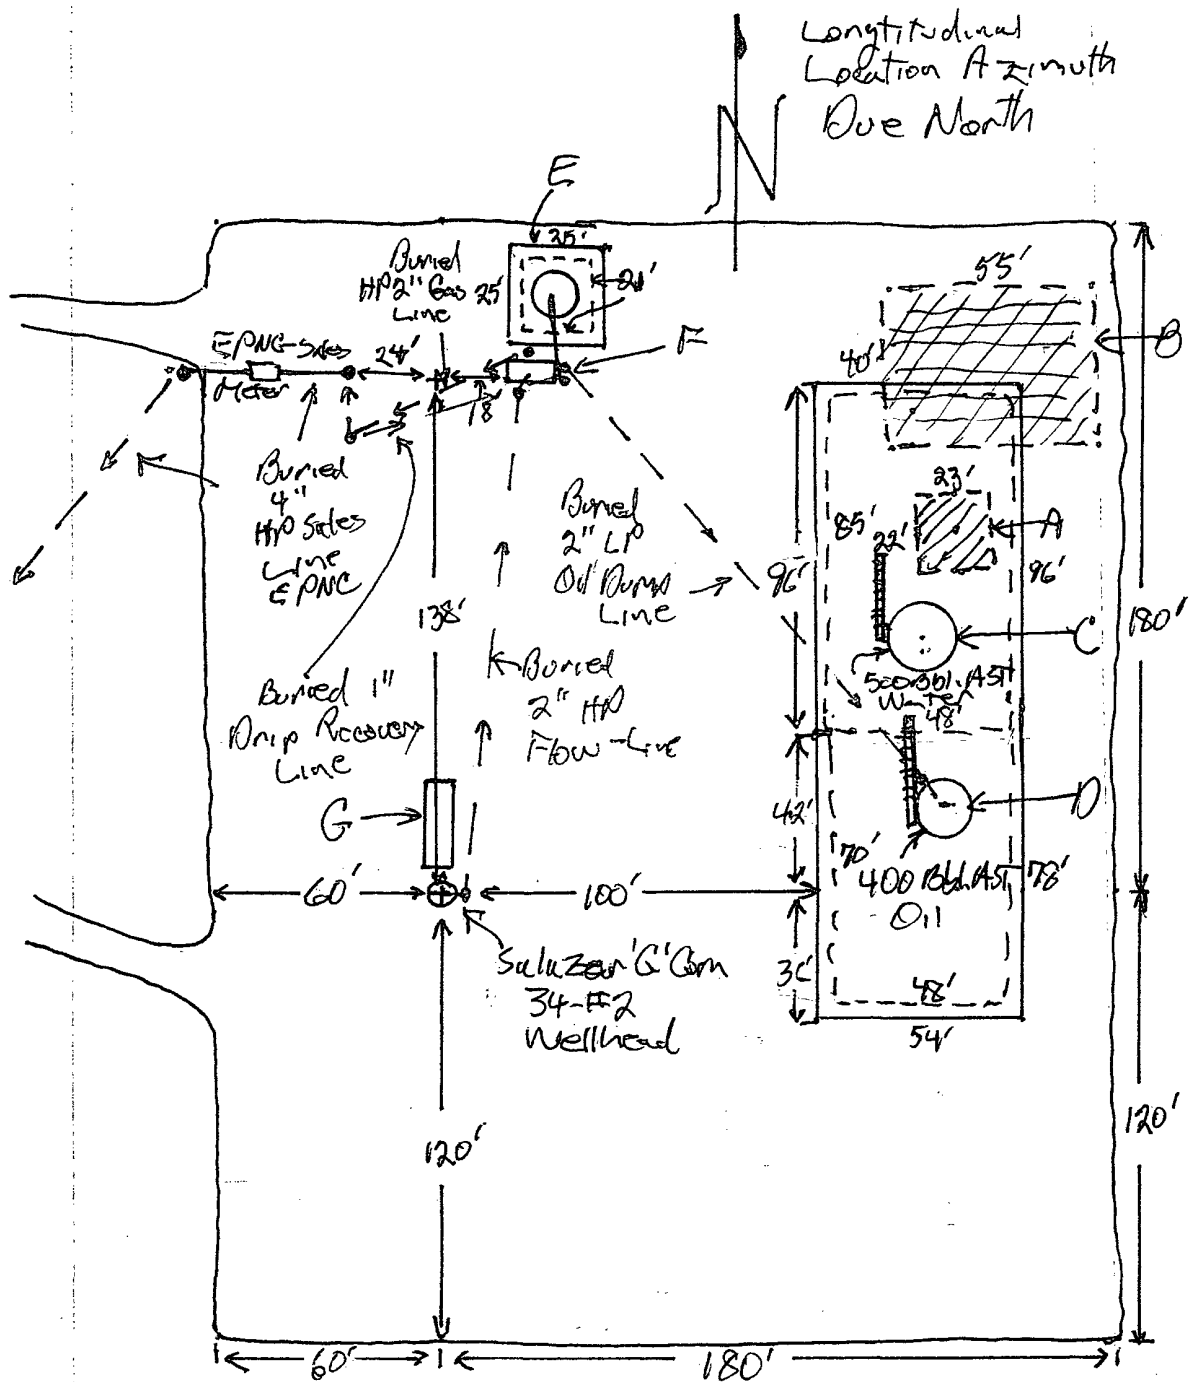 Longtitudinal
Location Azimuth
Due North
N
E
25'
Buried
HP 2" Gas
Line
25'
21'
F
55'
B
40'
EPNG Sales
Meter
24'
18'
Buried
4"
HP Sales
Line
EPNG
Buried
2" LP
Oil Dump
Line
23'
A
85'
22'
96'
96'
180'
138'
C
500 Bbl. AST
Water
48'
Buried 1"
Drip Recovery
Line
Buried
2" HP
Flow-Line
G
D
42'
70'
78'
400 Bbl. AST
Oil
60'
100'
Salazar 'G' Com
34-#2
Wellhead
36'
48'
54'
120'
120'
60'
180'